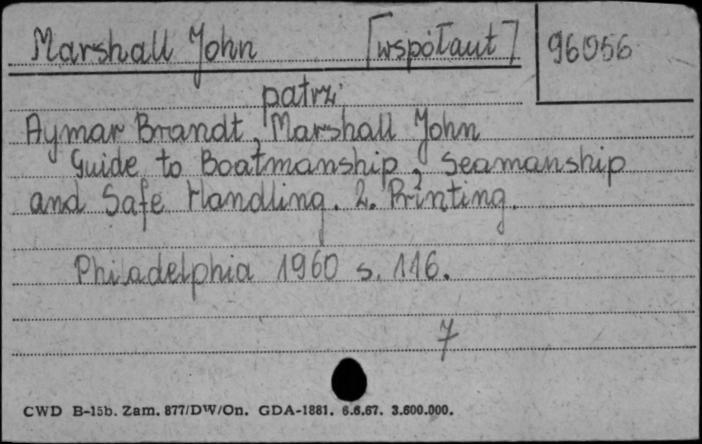 Marshall John [współaut] 96056
patrz
Aymar Brandt, Marshall John
Guide to Boatmanship, Seamanship
and Safe Handling. 2. Printing.
Philadelphia 1960 s. 116.
7
CWD B-15b. Zam. 877/DW/On. GDA-1881. 6.6.67. 3.600.000.